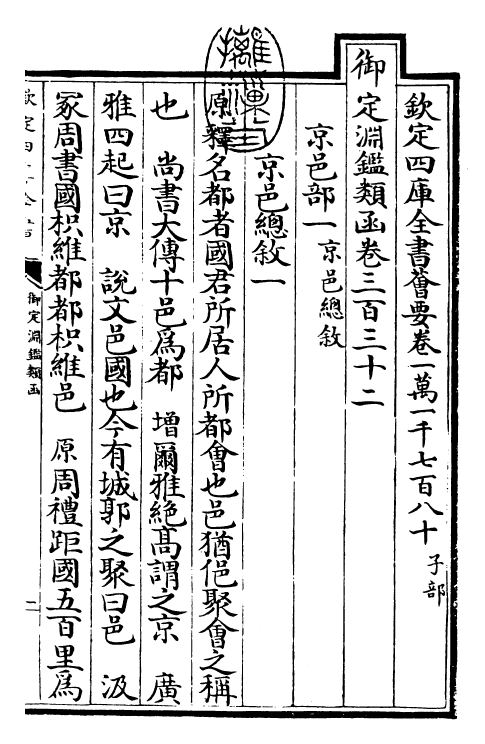 欽定四庫全書薈要卷一萬一千七百八十 子部
御定淵鑑類函卷三百三十二
京邑部一 京邑總敘
京邑總敘一
原釋名都者國君所居人所都會也邑猶俋聚會之稱
也 尚書大傳十邑為都 增爾雅絶髙謂之京 廣
雅四起曰京 說文邑國也今有城郭之聚曰邑 汲
冢周書國枳維都都枳維邑 原周禮距國五百里為
御定淵鑑類函